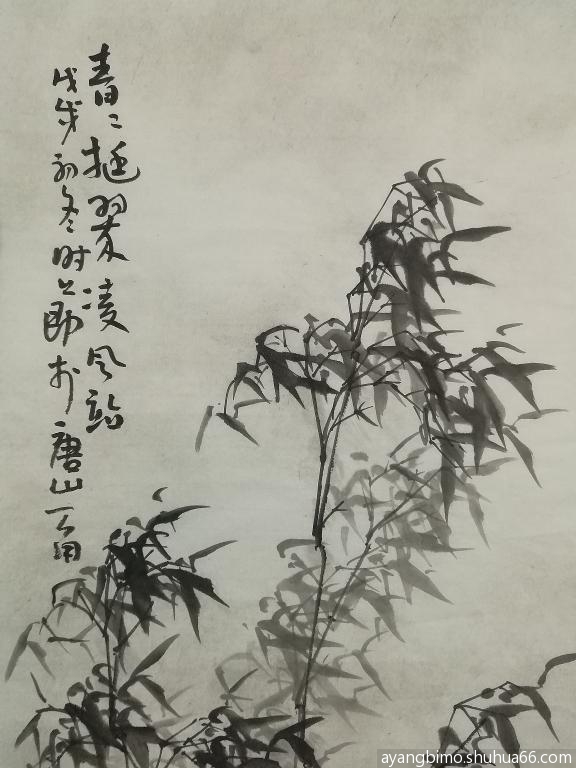 青〻挺翠凌风站
戊戌初冬时公郎於唐山一角
ayangbimo.shuhua66.com